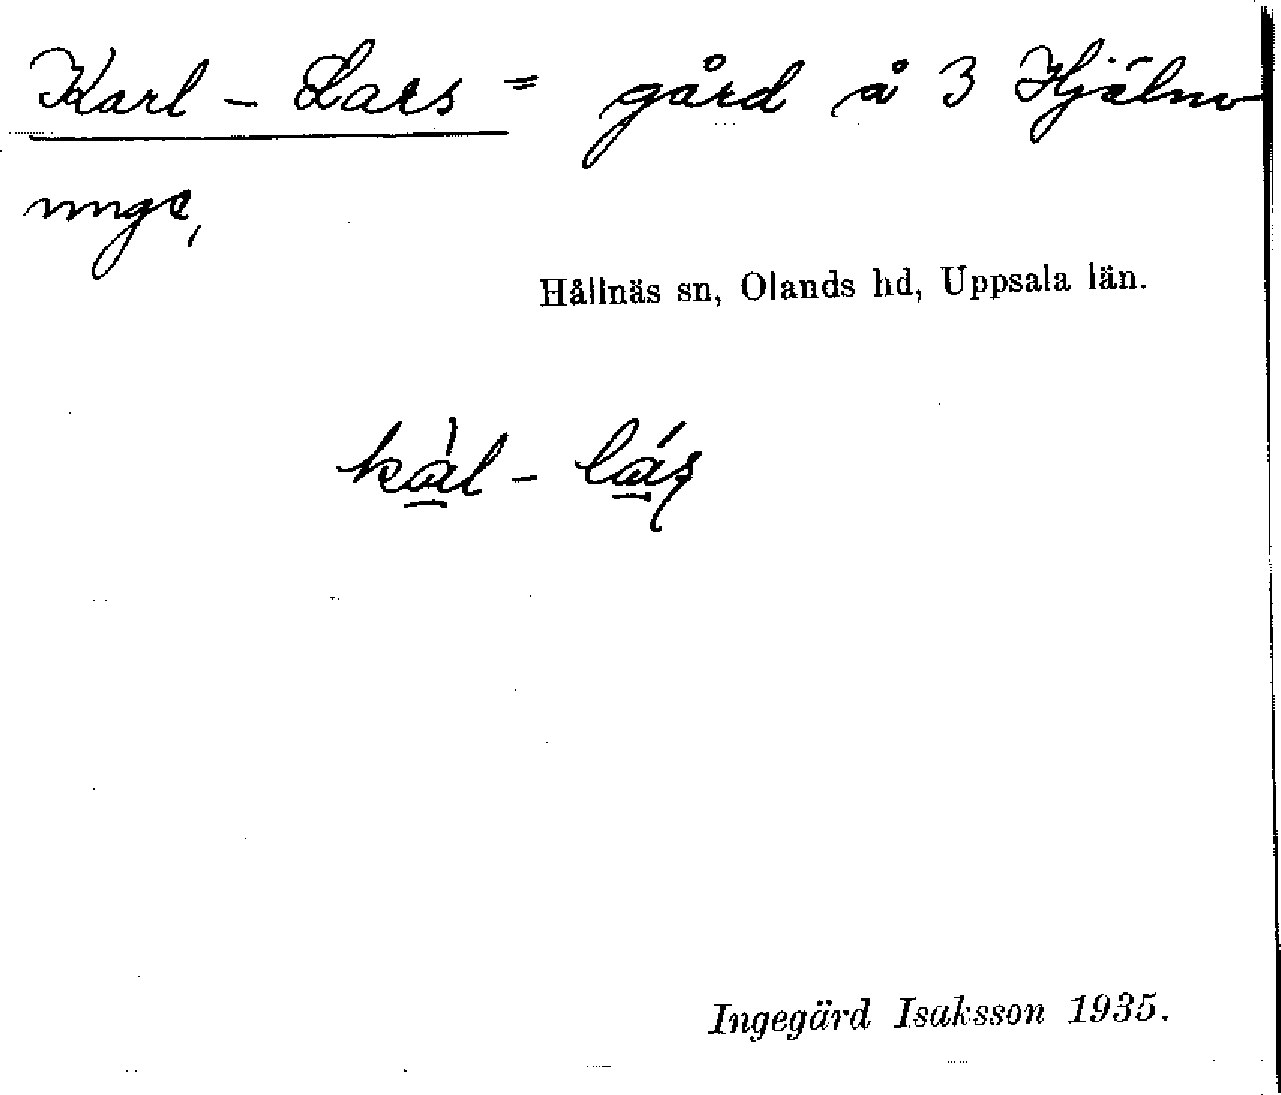 Karl-Lars = gård å 3 Hjälm
unge,
Hållnäs sn, Olands hd, Uppsala län.
kà̱l-lá̱ʂ
Ingegärd Isaksson 1935.